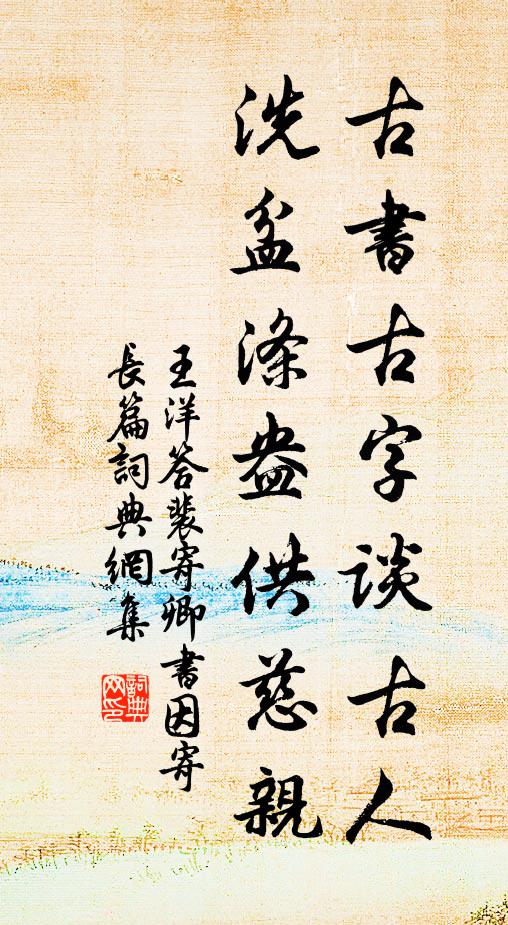 古書古字談古人
洗盆滌盎供慈親
王洋答裴寄卿書因寄
長篇詞典網集
詞典
网印